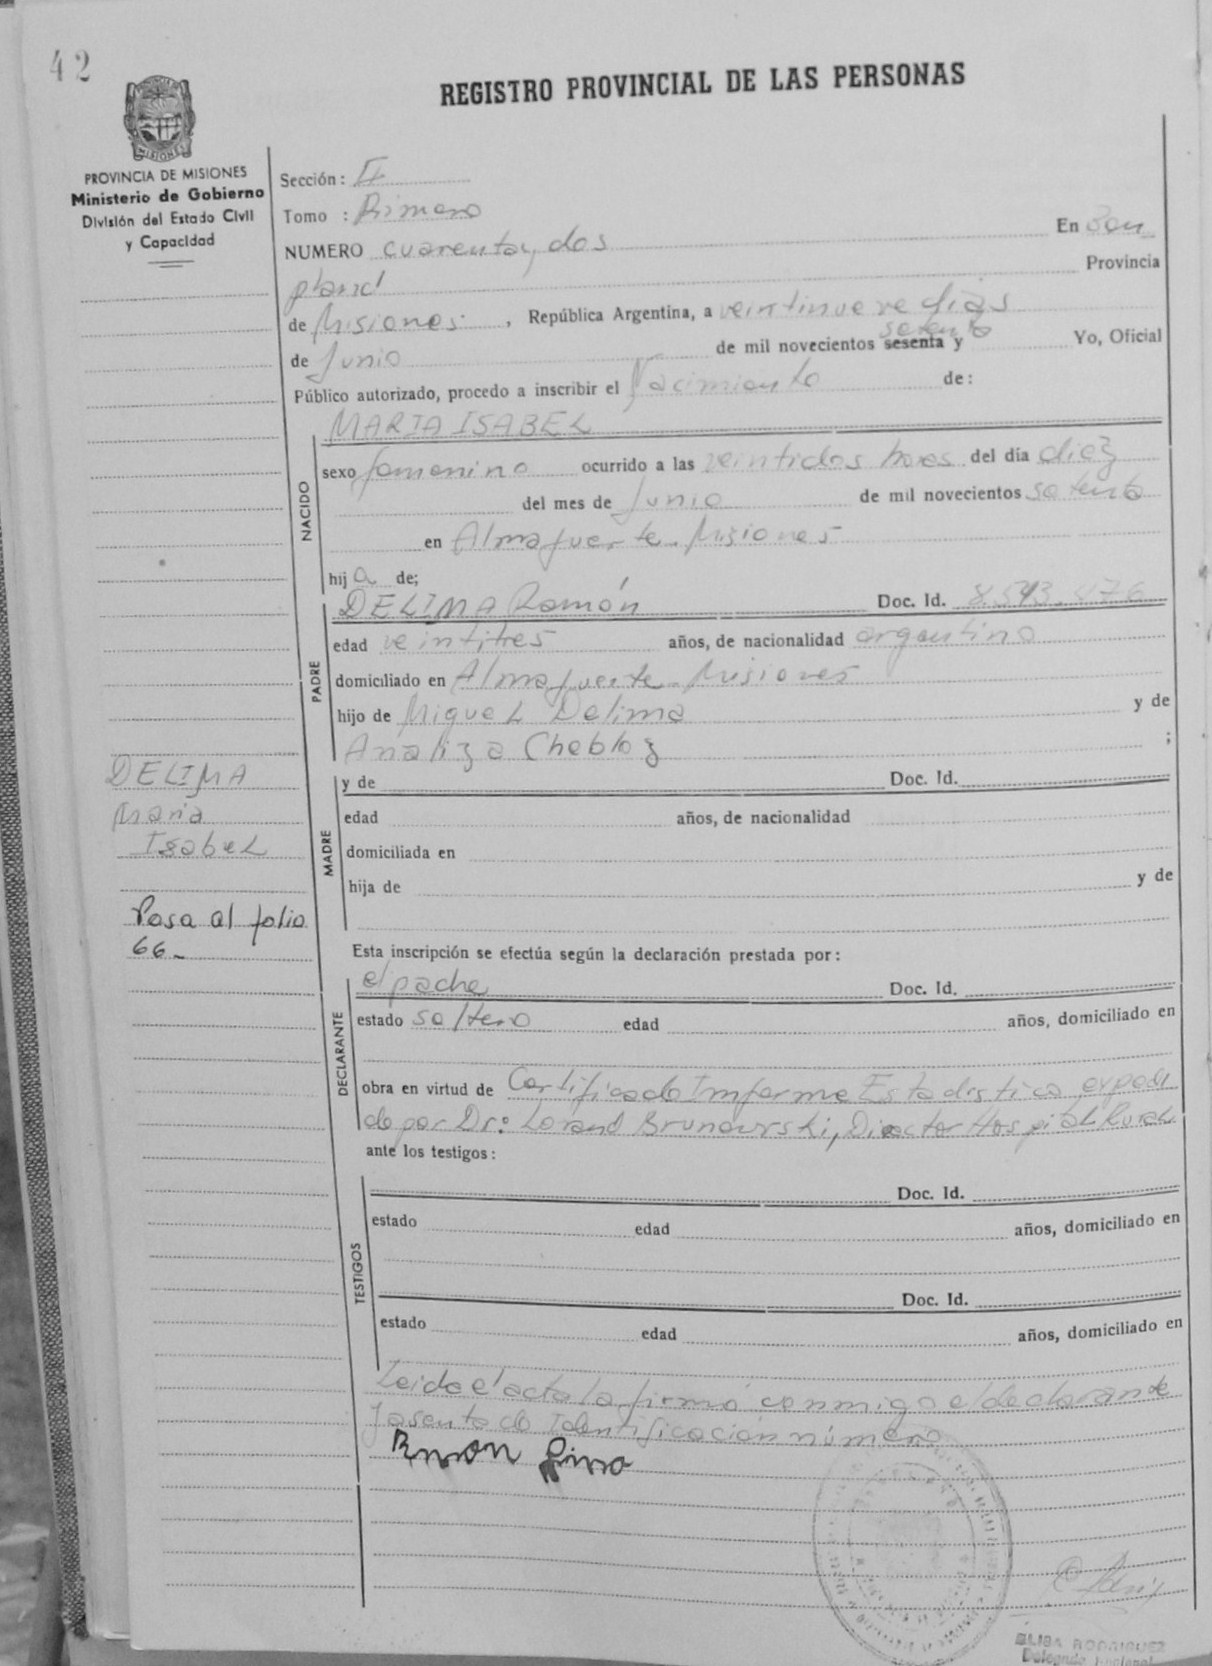 42
REGISTRO PROVINCIAL DE LAS PERSONAS
MISIONES
PROVINCIA DE MISIONES
Ministerio de Gobierno
División del Estado Civil
y Capacidad
Sección: II
Tomo : Primero
NUMERO cuarenta y dos En Bon
pland Provincia
de Misiones , República Argentina, a veintinueve dias
de Junio de mil novecientos sesenta y setenta Yo, Oficial
Público autorizado, procedo a inscribir el Nacimiento de:
MARIA ISABEL
NACIDO
sexo femenino ocurrido a las veintidos horas del día diez
del mes de Junio de mil novecientos setenta
en Almafuerte Misiones
hija de;
PADRE
DELIMA Ramón Doc. Id. 8.543.476
edad veintitres años, de nacionalidad argentino
domiciliado en Almafuerte Misiones
hijo de Miguel Delima y de
Analiza Chebloz ;
DELIMA
Maria
Isabel
Pasa al folio
66-
MADRE
y de Doc. Id.
edad años, de nacionalidad
domiciliada en
hija de y de
Esta inscripción se efectúa según la declaración prestada por:
DECLARANTE
el padre Doc. Id.
estado soltero edad años, domiciliado en
obra en virtud de Certificado Informe Estadistico expedi
do por Dr: Lorand Brunowski, Director Hospital Rural
ante los testigos:
TESTIGOS
Doc. Id.
estado edad años, domiciliado en
Doc. Id.
estado edad años, domiciliado en
Leida el acta la firmó conmigo el declarante
de Identificación número
Ramon
ELIBA RODRIGUEZ